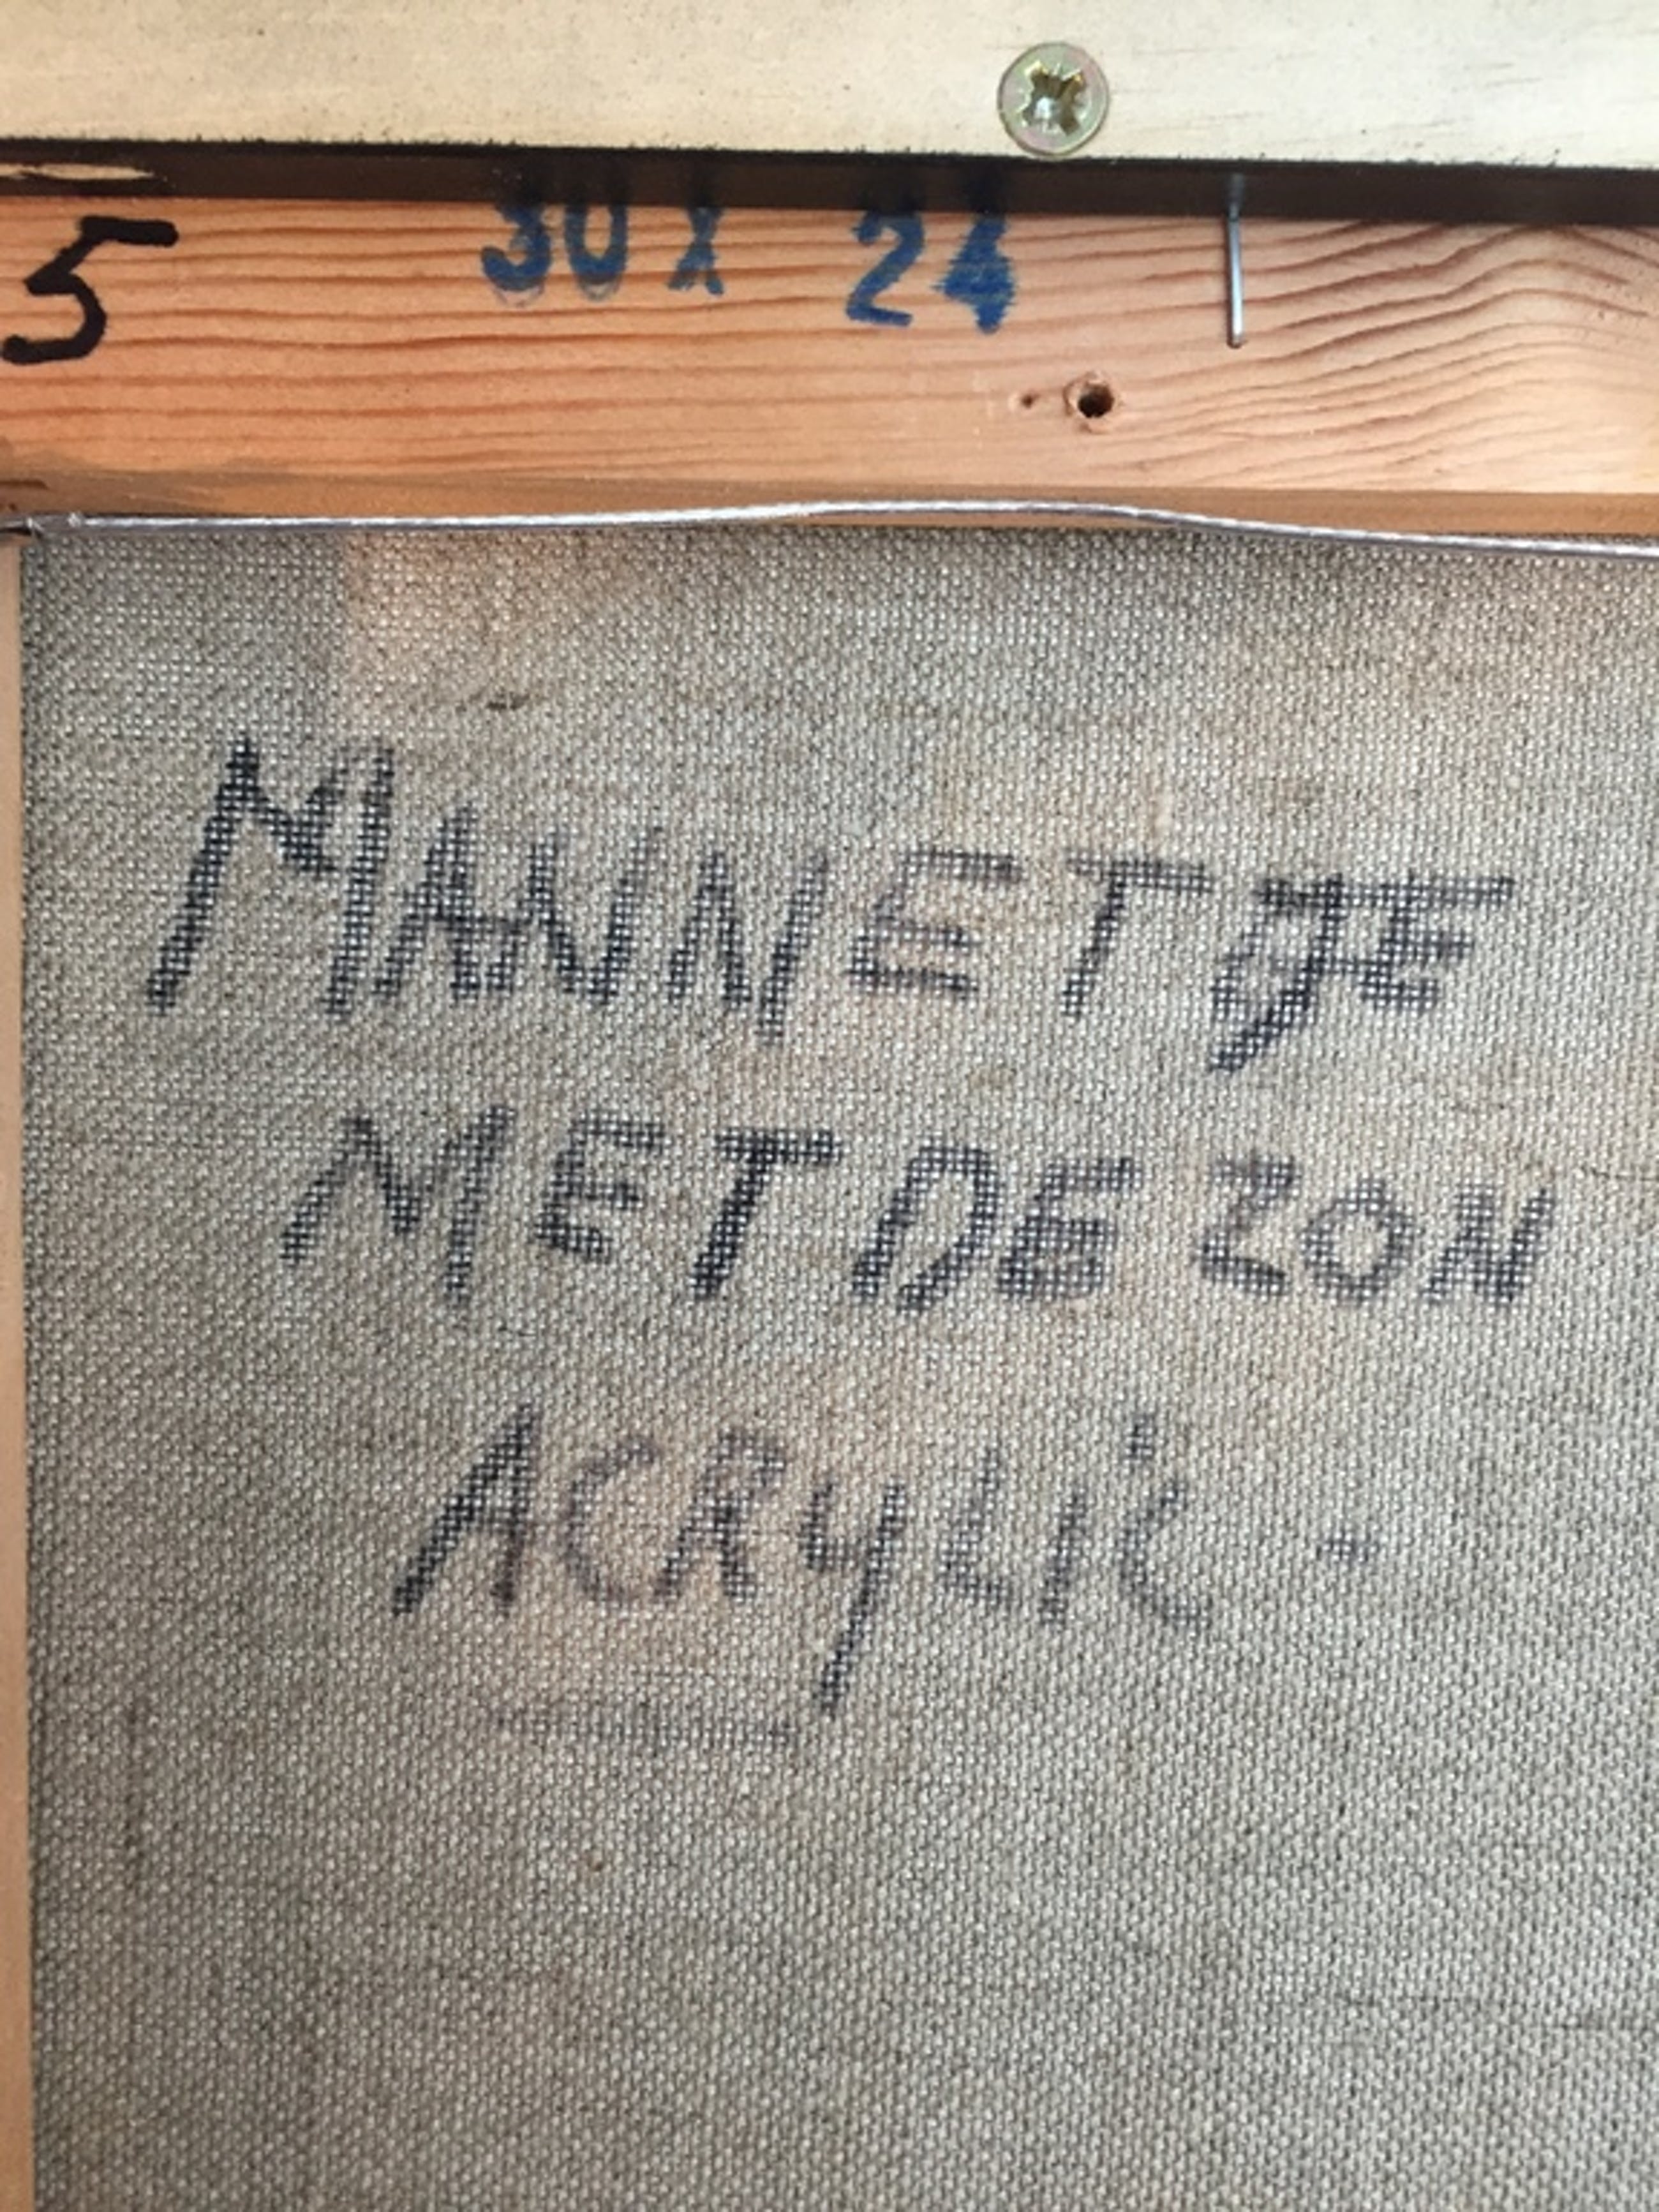 5 30 X 24
MANNETJE
MET DE ZON
ACRYLIC -